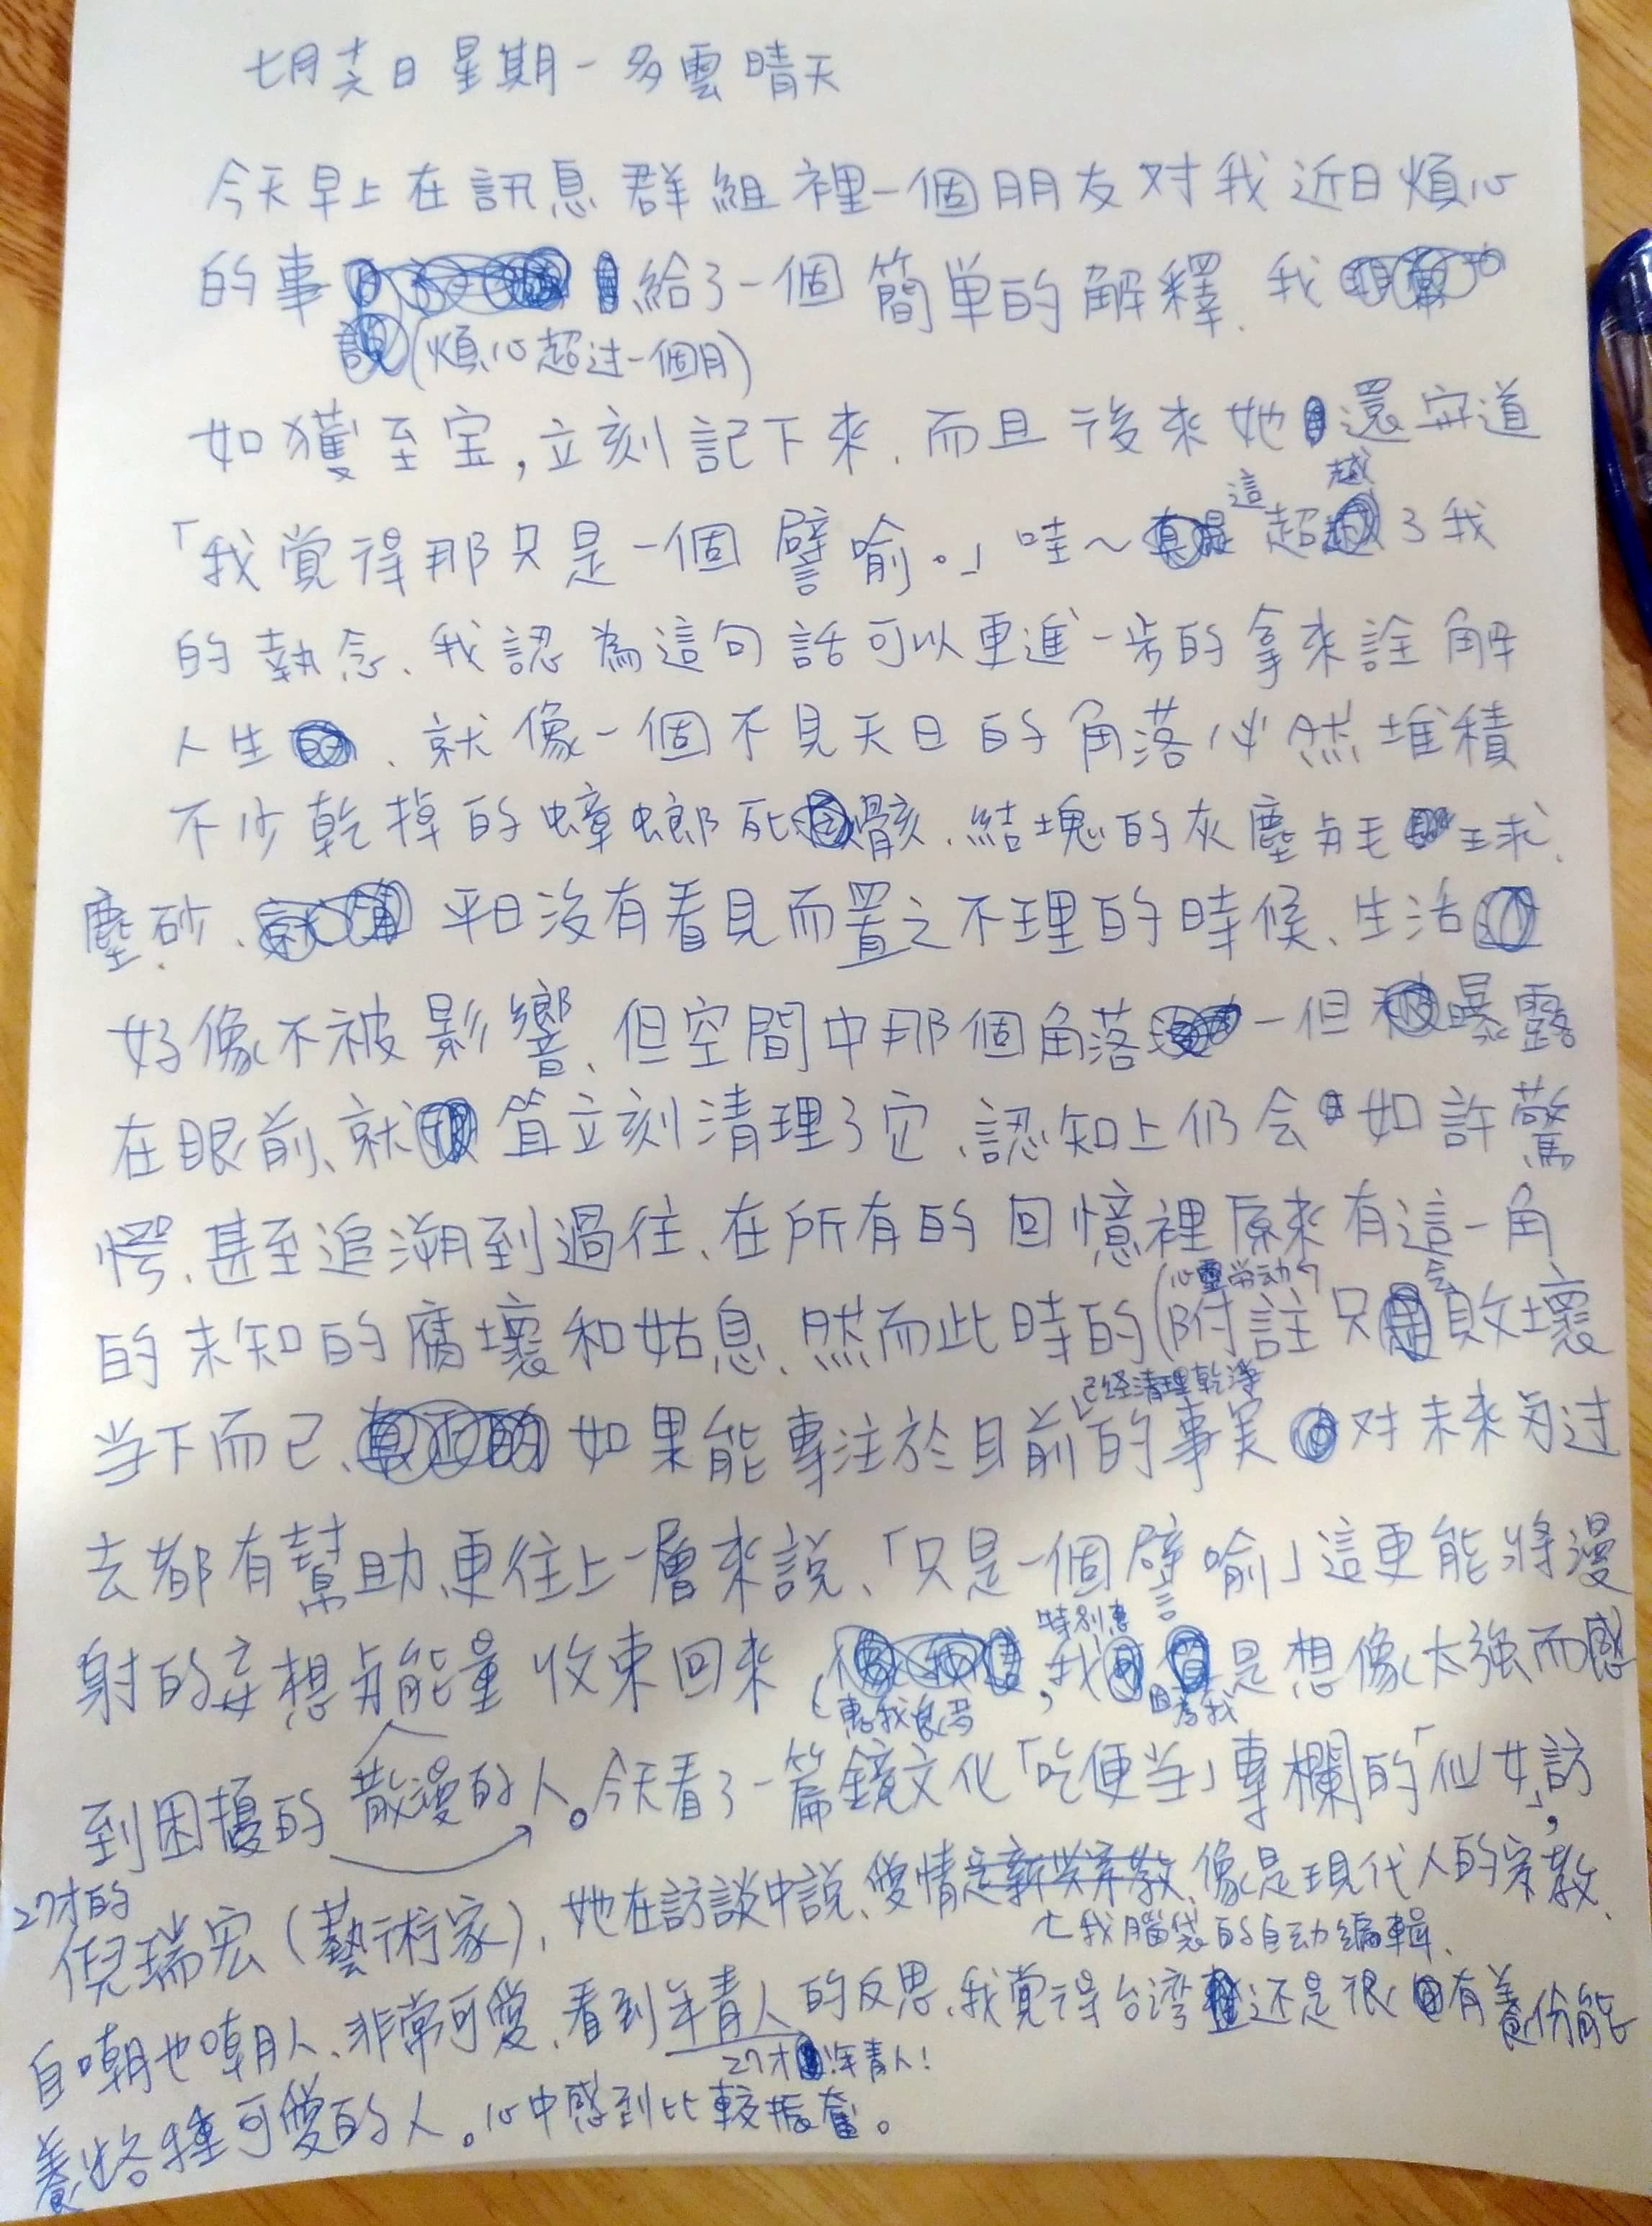 七月十六日星期一多雲晴天
今天早上在訊息群組裡一個朋友对我近日煩心
的事給了一個簡単的解釋、我
(煩心超过一個月)
如獲至宝,立刻記下來、而且後來她還安道
這 越
「我覚得那只是一個譬喻。」哇~超了我
的執念、我認為這句話可以更進一步的拿來詮解
人生、就像一個不見天日的角落必然堆積
不少乾掉的蟑螂死骸、結塊的灰塵与毛球、
塵砂、平日沒有看見而置之不理的時候、生活
好像不被影響、但空間中那個角落一但曝露
在眼前、就算立刻清理了它、認知上仍会如許驚
愕、甚至追溯到過往、在所有的回憶裡原來有這一角
(心靈労动)
的未知的腐壞和姑息、然而此時的附註只会敗壞
已経清理乾淨
当下而已、如果能專注於目前的事実对未来与过
去都有幫助、更往上一層來説、「只是一個譬喻」這更能將漫
射的妄想与能量收束回來 ,我是想像太強而感
特別惠
(惠我良多
到困擾的散漫的人。今天看了一篇鏡文化「吃便当」專欄的「仙女訪」,
27才的
倪瑞宏(藝術家),她在訪談中説、愛情是新興宗教、像是現代人的宗教、
我腦袋的自动編輯、
自嘲也嘲人、非常可愛、看到年青人的反思、我覚得台湾還是很有養份能
27才年青人!
養出各種可愛的人。心中感到比較振奮。